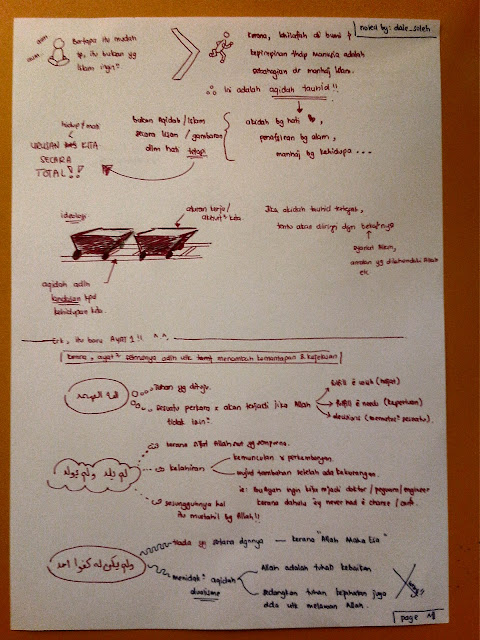 noted by: dale_soleh
aum
aum
Bertapa itu mudah
tp, itu bukan yg
Islam ingin?
kerana, khilafah di bumi +
kepimpinan thdp manusia adalah
sebahagian dr manhaj Islam.
∴ Ini adalah aqidah tauhid!!
hidup/mati
URUSAN KITA
SECARA
TOTAL!!
bukan Aqidah/Islam
secara lisan / gambaran
dlm hati tetapi
akidah bg hati ♥,
penafsiran bg alam,
manhaj bg kehidupan ...
ideologi
aturan kerja/
aktiviti² kita
Jika akidah tauhid tertegak,
tentu akan diiringi dgn
syariat Allah,
amalan yg dikehendaki Allah
etc
aqidah adlh
landasan kpd
kehidupan kita.
Erk, itu baru AYAT 1!! ^^,
kerana, ayat² seterusnya adlh utk menambah kemantapan & kejelasan
الله الصمد
Tuhan yg dituju.
Sesuatu perkara x akan terjadi jika Allah
tidak izin.
fulfill è wish (hajat)
fulfill è needs (keperluan)
decisions (memutus² sesuatu).
لم يلد ولم يولد
kerana sifat Allah swt yg sempurna.
kelahiran
kemunculan & perkembangan.
wujud tambahan selelah ada kekurangan.
ie: Ibu Ayah ingin kita mjadi doktor / peguam/engineer
kerana dahulu ey never had è chance /
sesungguhnya hal
itu mustahil bg Allah!!
ولم يكن له كفوا احد
Tiada yg setara dgnnya — kerana "Allah Maha Esa"
menidak² aqidah
dualisme
Allah adalah tuhan kebaikan
sedangkan tuhan kejahatan juga
ada utk melawan Allah.
page